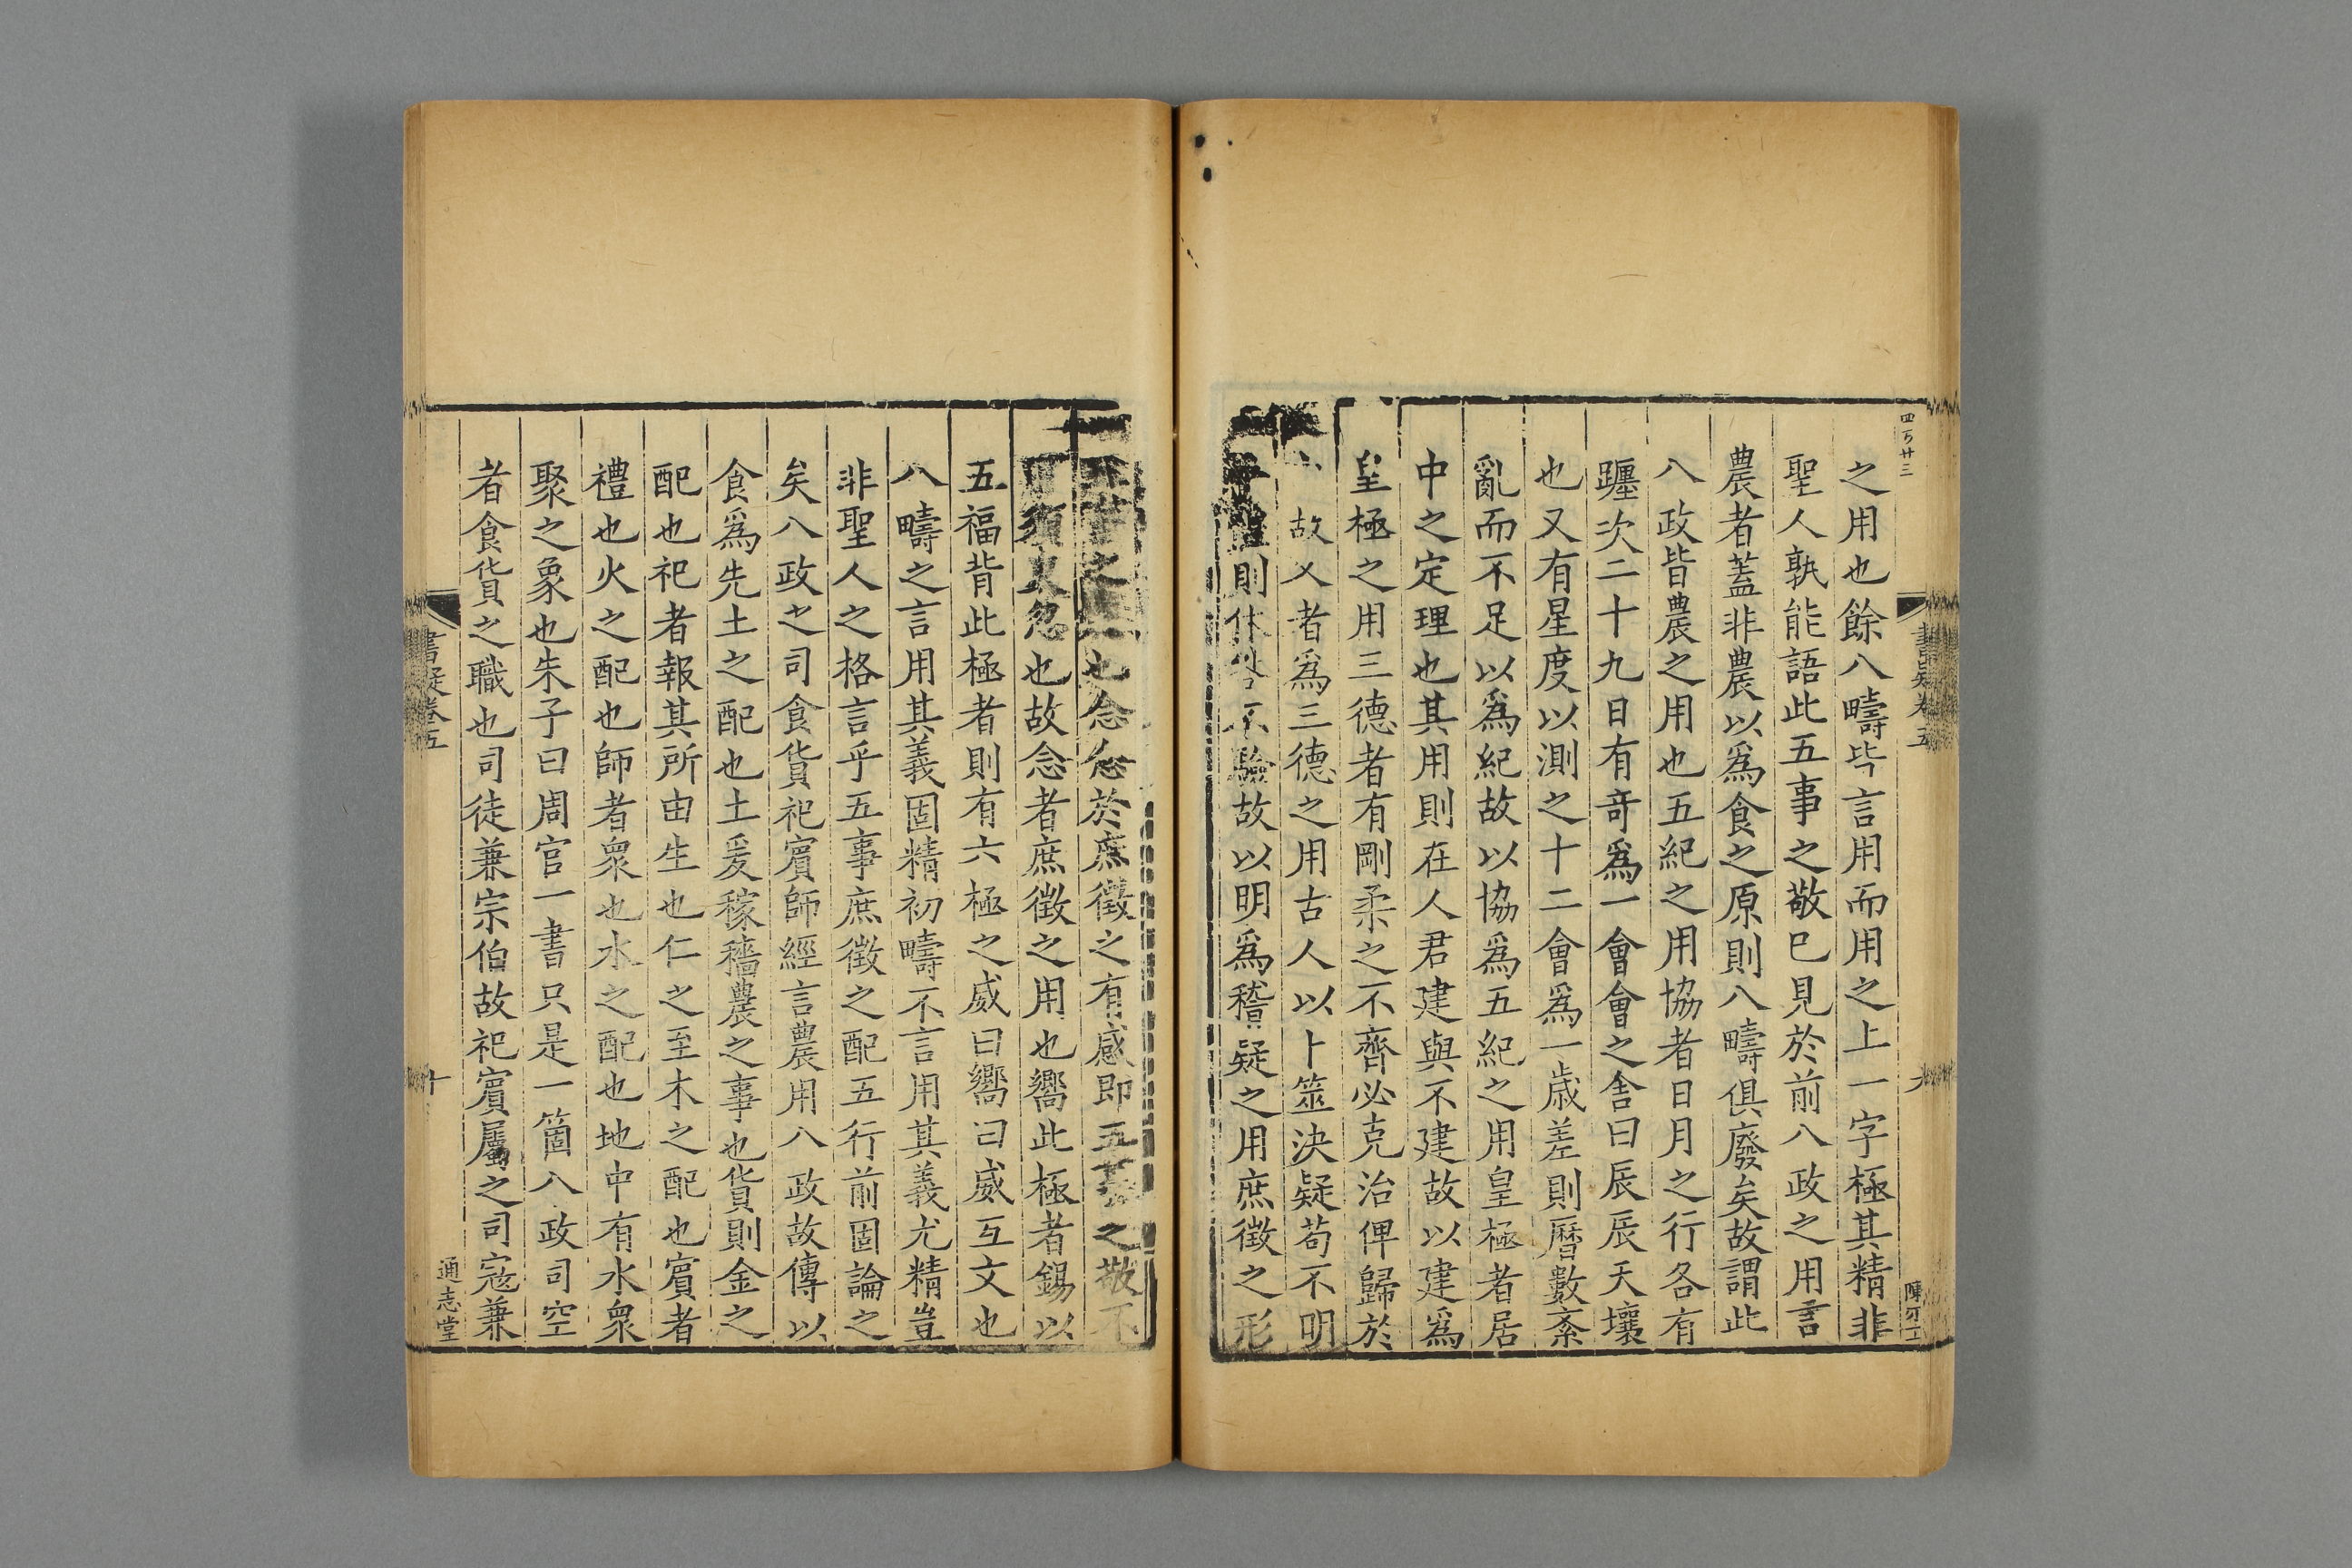 四百廿三
之用也餘八疇皆言用而用之上一字極其精非
聖人孰能語此五事之敬已見於前八政之用言
農者蓋非農以爲食之原則八疇俱廢矣故謂此
八政皆農之用也五紀之用協者日月之行各有
躔次二十九日有奇爲一會會之舍曰辰辰天壤
也又有星度以測之十二會爲一歲差則曆數紊
亂而不足以爲紀故以協爲五紀之用皇極者居
中之定理也其用則在人君建與不建故以建爲
皇極之用三德者有剛柔之不齊必克治俾歸於
故乂者爲三德之用古人以卜筮決疑苟不明
則休咎不驗故以明爲稽疑之用庶徵之形
書疑卷五
九
之 也念念於庶徵之有感即五事之敬不
須臾忽也故念者庶徵之用也嚮此極者錫以
五福背此極者則有六極之威曰嚮曰威互文也
八疇之言用其義固精初疇不言用其義尤精豈
非聖人之格言乎五事庶徵之配五行前固論之
矣八政之司食貨祀賓師經言農用八政故傳以
食爲先土之配也土爰稼穡農之事也貨則金之
配也祀者報其所由生也仁之至木之配也賓者
禮也火之配也師者衆也水之配也地中有水衆
聚之象也朱子曰周官一書只是一箇八政司空
者食貨之職也司徒兼宗伯故祀賓屬之司寇兼
書疑卷五
十
通志堂